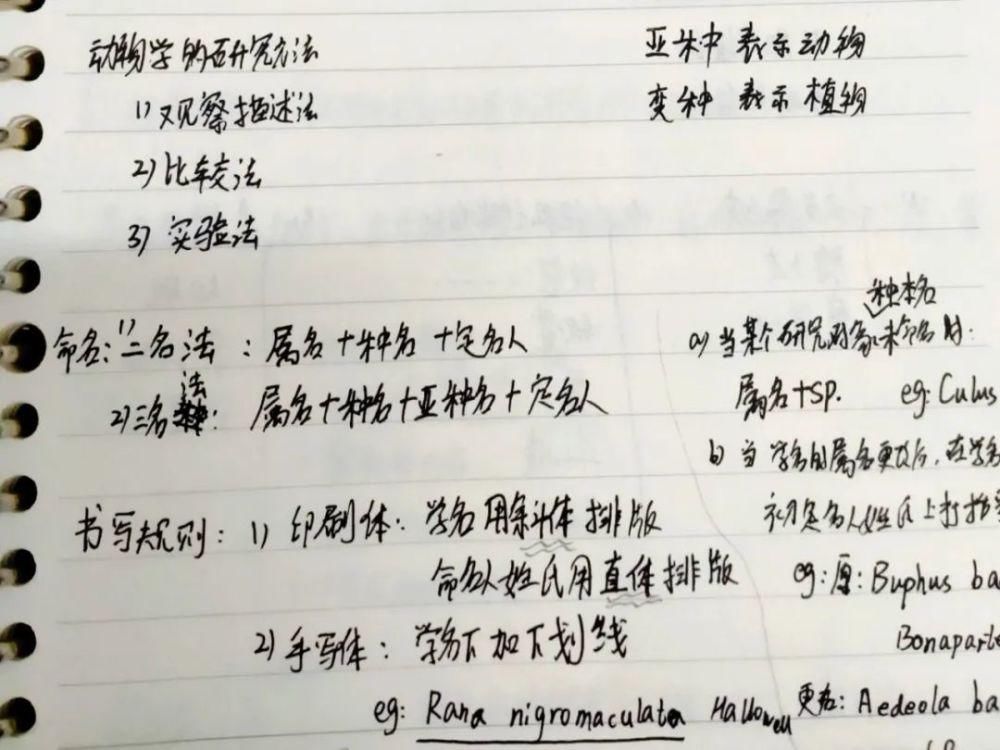 动物学的研究方法
1) 观察描述法
2) 比较法
3) 实验法
亚种 表示动物
变种 表示植物
命名: 1) 二名法 : 属名+种名+定名人
2) 三名法: 属名+种名+亚种名+定名人
种本名
a) 当某个研究对象未命名时:
属名+sp. eg: Culus
b) 当学名的属名更改后, 在学名
初定名人姓氏上打括
eg: 原: Buphus ba
Bonaparte
更名: Aedeola ba
书写规则: 1) 印刷体: 学名用斜体排版
命名人姓氏用直体排版
2) 手写体: 学名下加下划线
eg: Rana nigromaculata Hallowell